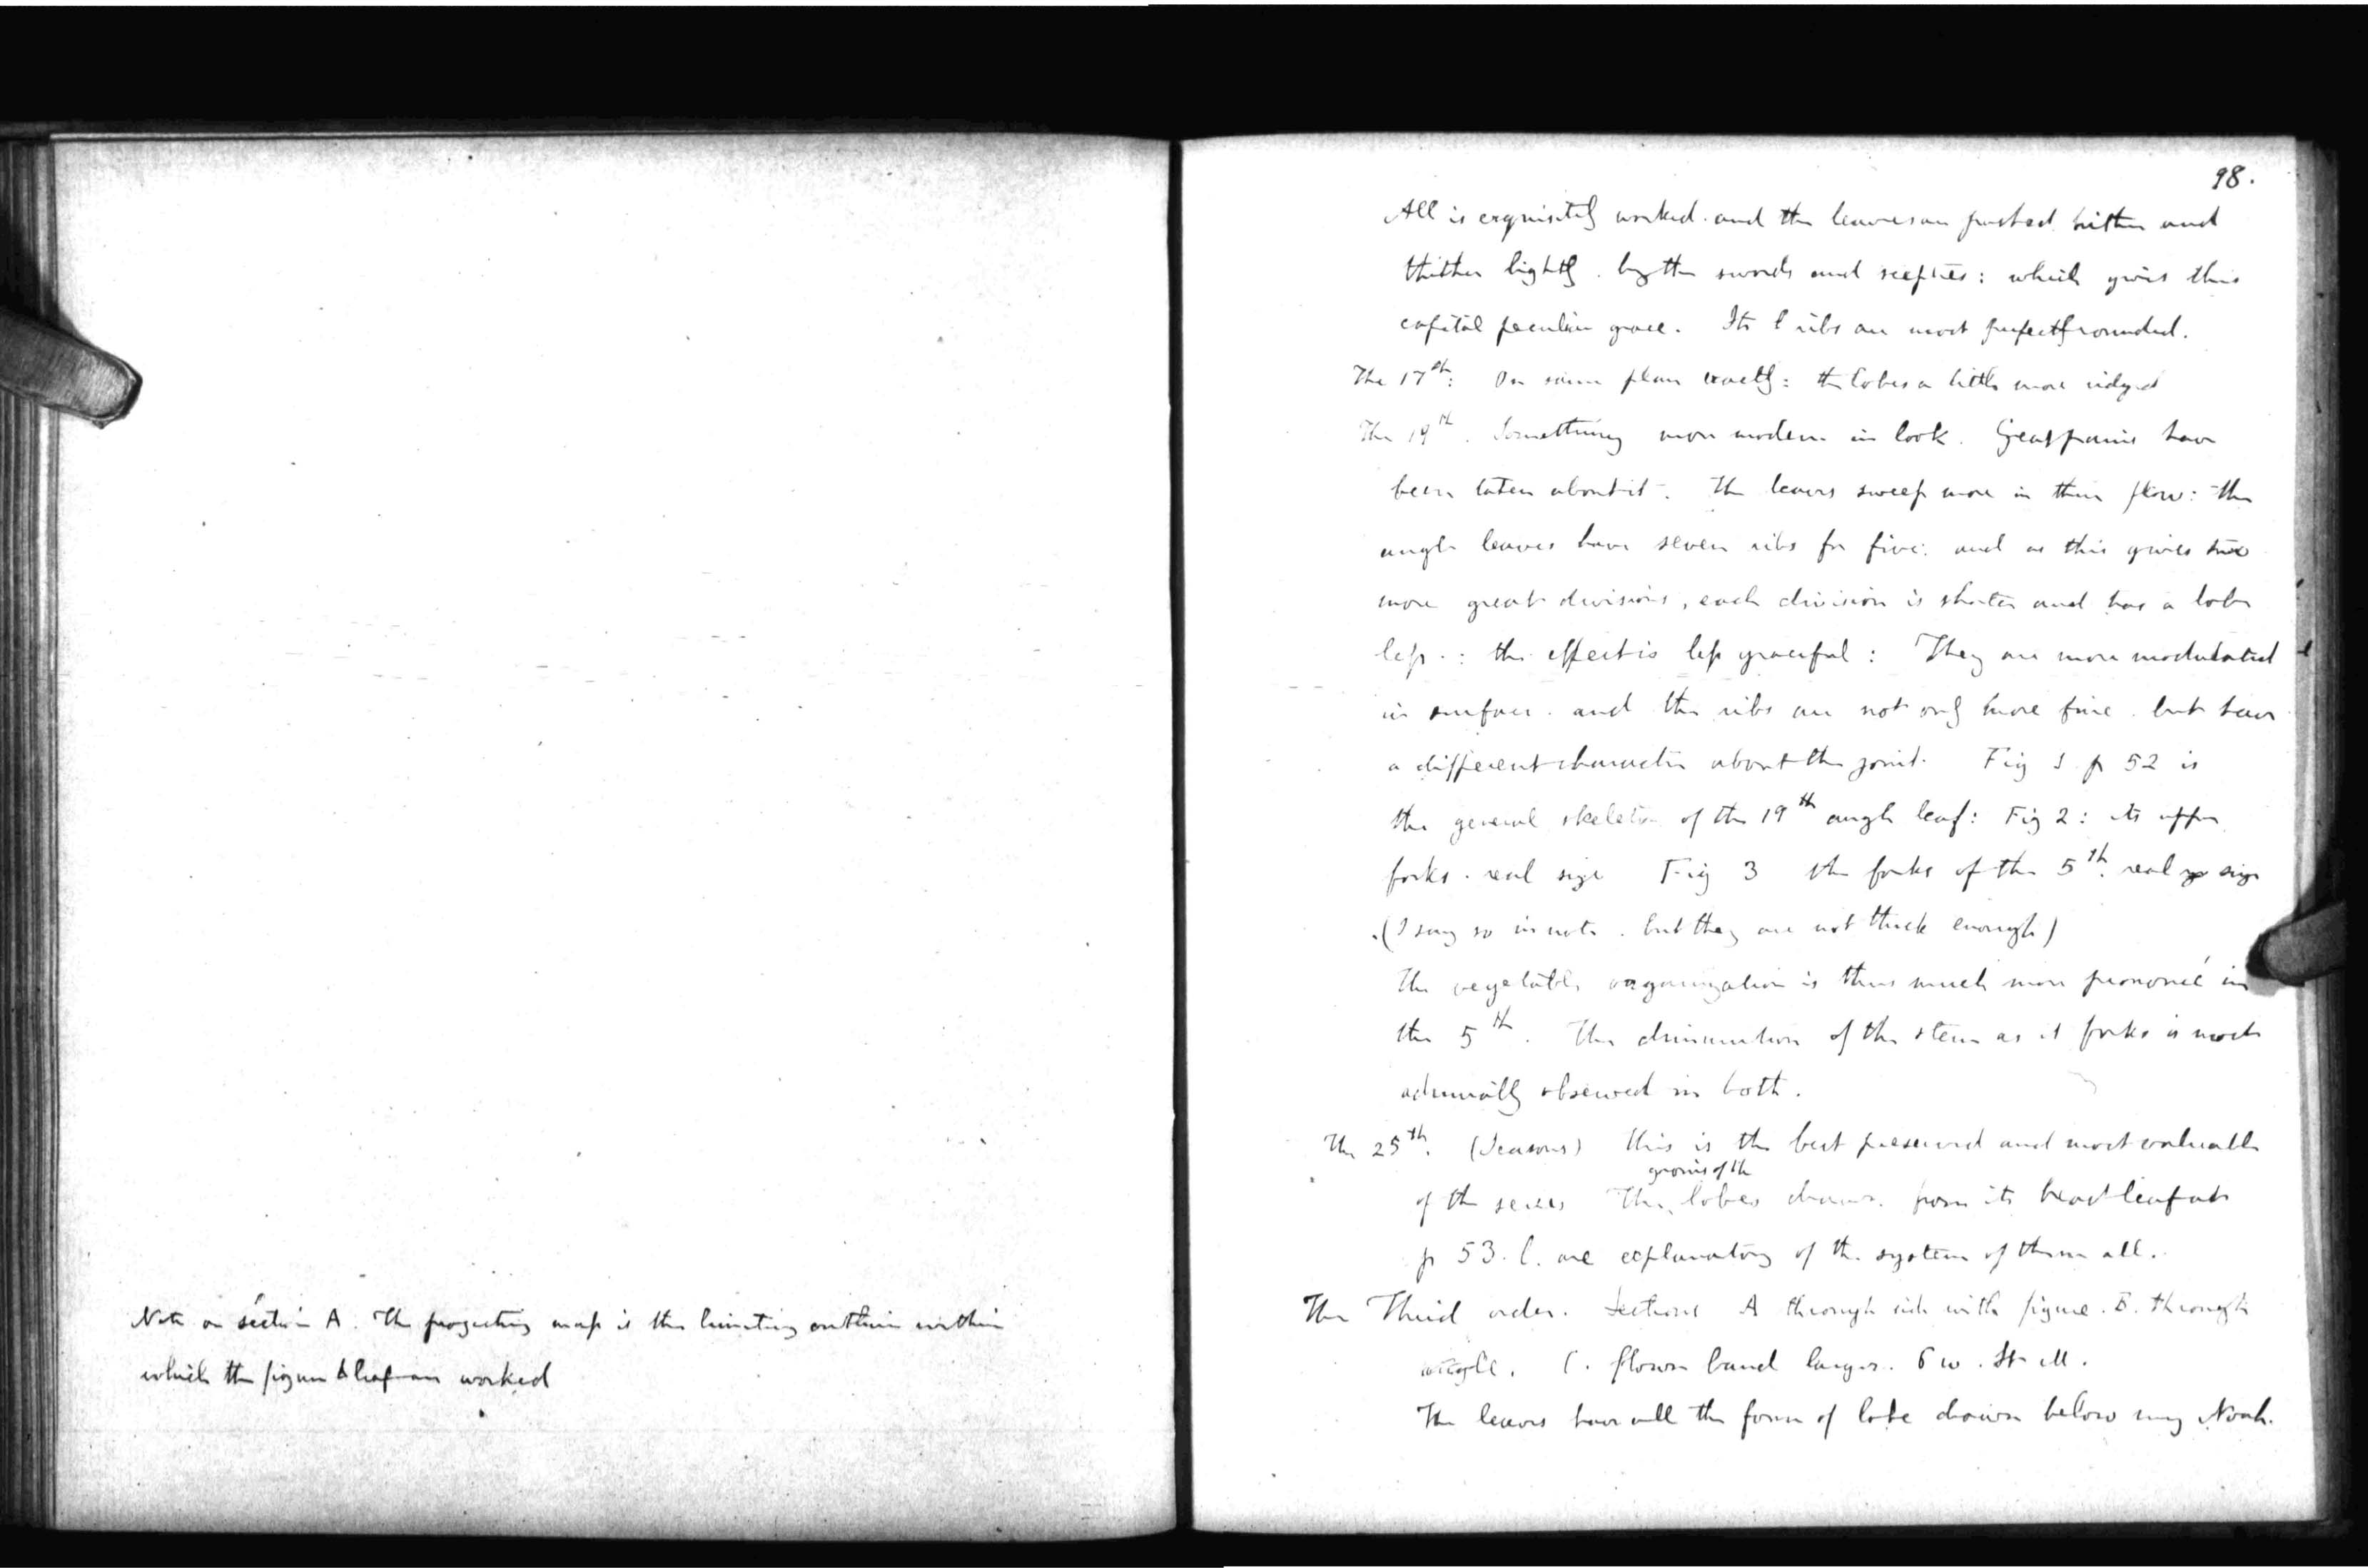 Note on section A. The projecting mass is the limiting outline within
which the figure & leaf are worked
98.
All is exquisitely worked. and the leaves are pushed hither and
thither lightly. by the swords and sceptres: which gives this
capital peculiar grace. Its l ribs are most perfectly rounded.
The 17th: On same plan exactly: the lobes a little more ridged
The 19th. Something more modern in look. Great pains have
been taken about it. The leaves sweep more in their flow: the
angle leaves have seven ribs for five: and as this gives two
more great divisions, each division is shorter and has a lobe
less.: the effect is less graceful: They are more modulated
in surface. and the ribs are not only more fine. but have
a different character about the joint. Fig 1 p 52 is
the general skeleton of the 19th angle leaf: Fig 2: its upper
forks. real size Fig 3 the forks of the 5th. real size
(I say so in note. but they are not thick enough)
The vegetable organization is thus much more prononcé in
the 5th. The diminution of the stem as it forks is most
admirably observed in both.
The 25th. (Seasons) this is the best preserved and most valuable
groins of the
of the series The lobes drawn. from its head leaf at
p 53. l. are explanatory of the system of them all.
The Third order. Sections A through side with figure. B. through
angle. C. flower band larger. 6 w. St M.
The leaves have all the form of lobe drawn below my Noah.